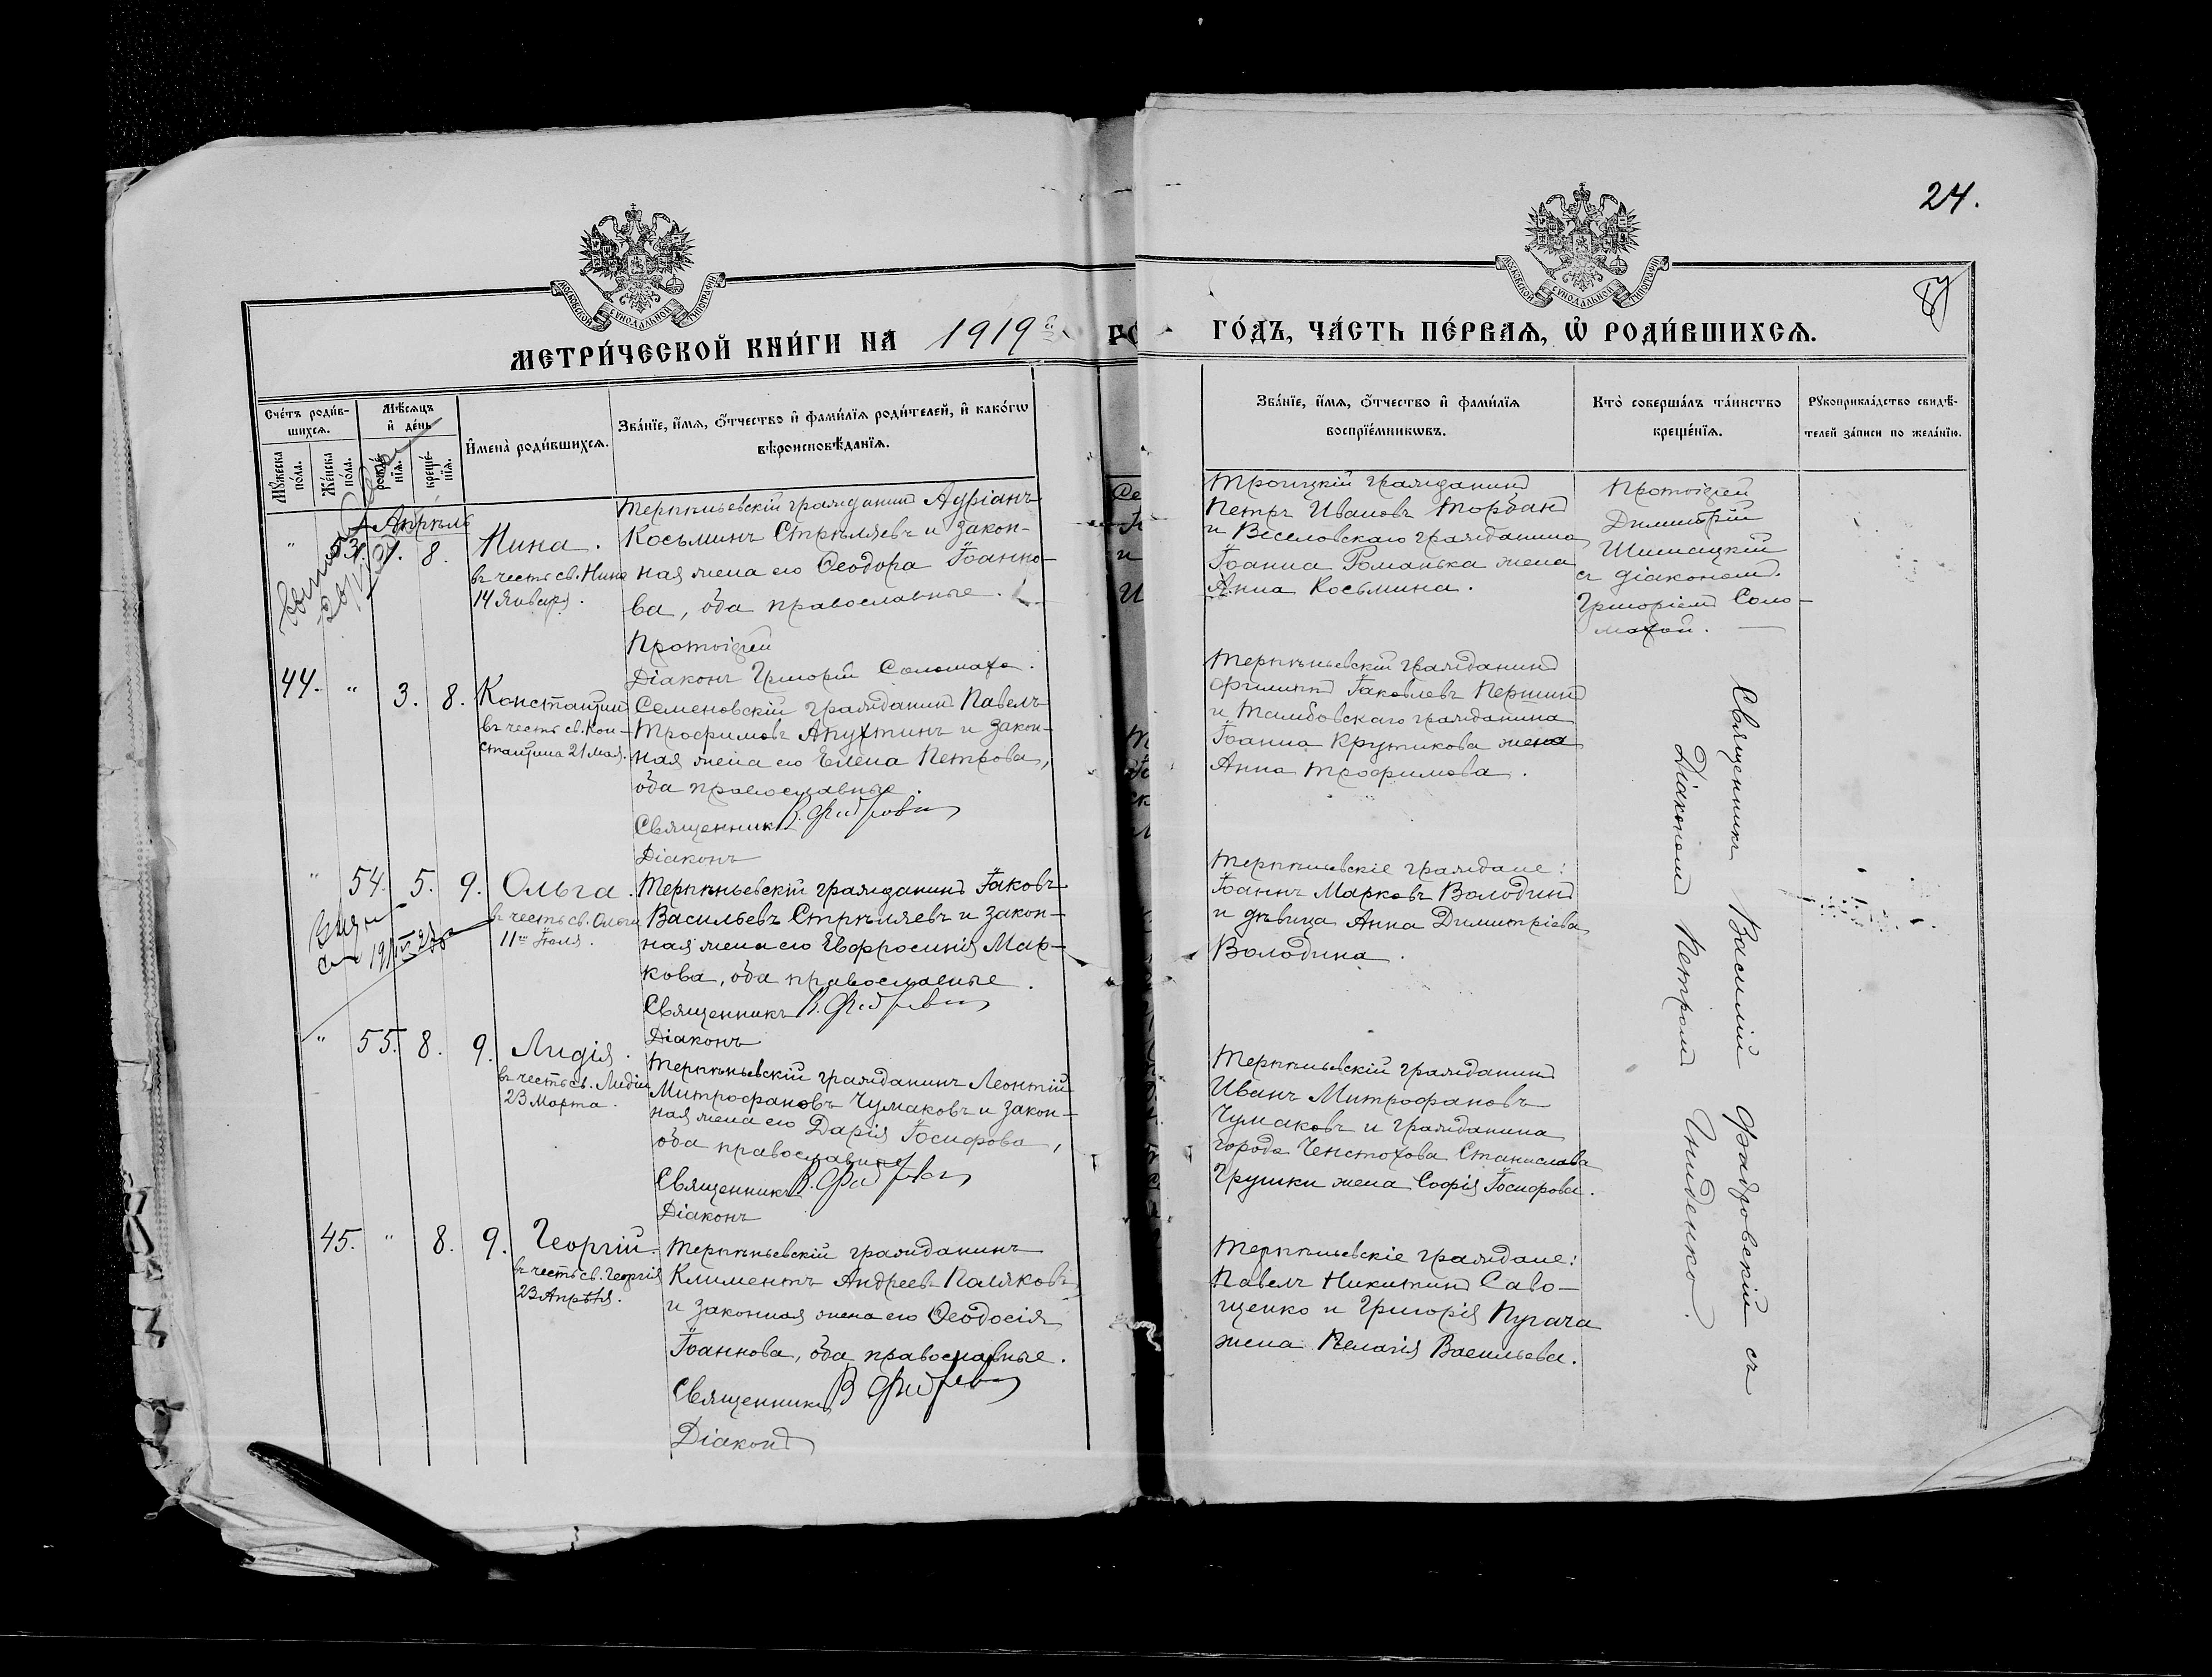 24.
МОСКОВСКОЙ СѴНОДАЛЬНОЙ ТИПОГРАФІИ
МОСКОВСКОЙ СѴНОДАЛЬНОЙ ТИПОГРАФІИ
МЕТРИ́ЧЕСКОЙ КНИ́ГИ НА 1919 й
ГО́ДЪ, ЧА́СТЬ ПЕ́РВАѦ, Ѡ РОДИ́ВШИХСѦ.
Сче́тъ роди́в-
шихсѧ.
Мꙋ́жеска по́ла.
Же́нска по́ла.
Мѣ́сѧцъ
и де́нь
рожде́-
нїѧ.
креще́-
нїѧ.
Имена̀ роди́вшихсѧ.
Зва́нїе, и́мѧ, о́тчество и фами́лїѧ роди́телей, и како́гѡ
вѣроисповѣ́данїѧ.
Зва́нїе, и́мѧ, о́тчество и фами́лїѧ
воспрїе́мникѡвъ.
Кто̀ соверша́лъ та́инство
креще́нїѧ.
Рꙋкоприкла́дство свидѣ́-
телей за́писи по жела́нїю.
Апрѣль
" 53. 8.
Нина.
въ честь св. Нины
14 Января.
Терпѣньевскій гражданинъ Адріанъ
Косьминъ Стрѣляевъ и закон-
ная жена его Ѳеодора Іоанно-
ва, оба православные.
Протоіерей
Діаконъ Григорій Соломаха.
Троицкій гражданинъ
Петръ Ивановъ Торбанъ
и Веселовскаго гражданина
Іоанна Романька жена
Анна Косьмина.
Протоіерей
Димитрій
Шишацкій
съ діакономъ
Григоріемъ Соло-
махой.
44. " 3. 8.
Констаңтинъ
въ честь св. Кон-
стантина 21 Мая.
Семеновскій гражданинъ Павелъ
Трофимовъ Апухтинъ и закон-
ная жена его Елена Петрова,
оба православные.
Священникъ В.
Діаконъ
Терпѣньевскій гражданинъ
Филиппъ Іаковлевъ Першинъ
и Тамбовскаго гражданина
Іоанна Крутикова жена
Анна Трофимова.
" 54. 5. 9.
Ольга.
въ честь св. Ольги
11го Іюля.
Терпѣньевскій гражданинъ Іаковъ
Васильевъ Стрѣляевъ и закон-
ная жена его Евфросинія Мар-
кова, оба православные.
Священникъ В.
Діаконъ
Терпѣньевскіе граждане:
Іоаннъ Марковъ Володинъ
и дѣвица Анна Димитріева
Володина.
" 55. 8. 9.
Лидія.
въ честь св. Лидіи
23 Марта.
Терпѣньевскій гражданинъ Леонтій
Митрофановъ Чумаковъ и закон-
ная жена его Дарія Іосифова,
оба православные
Священникъ В.
Діаконъ
Терпѣньевскій гражданинъ
Иванъ Митрофановъ
Чумаковъ и гражданина
города Ченстохова Станислава
Грушки жена Софія Іосифова.
45. " 8. 9.
Георгій.
въ честь св. Георгія
23 Апрѣля.
Терпѣньевскій гражданинъ
Климентъ Андреевъ Паляковъ
и законная жена его Ѳеодосія
Іоаннова, оба православные.
Священникъ В
Діаконъ
Терпѣньевскіе граждане:
Павелъ Никитинъ Саво-
щенко и Григорія Пугача
жена Пелагія Васильева.
Священникъ Василій Фадровскій съ
Діакономъ Петромъ Гниденко.